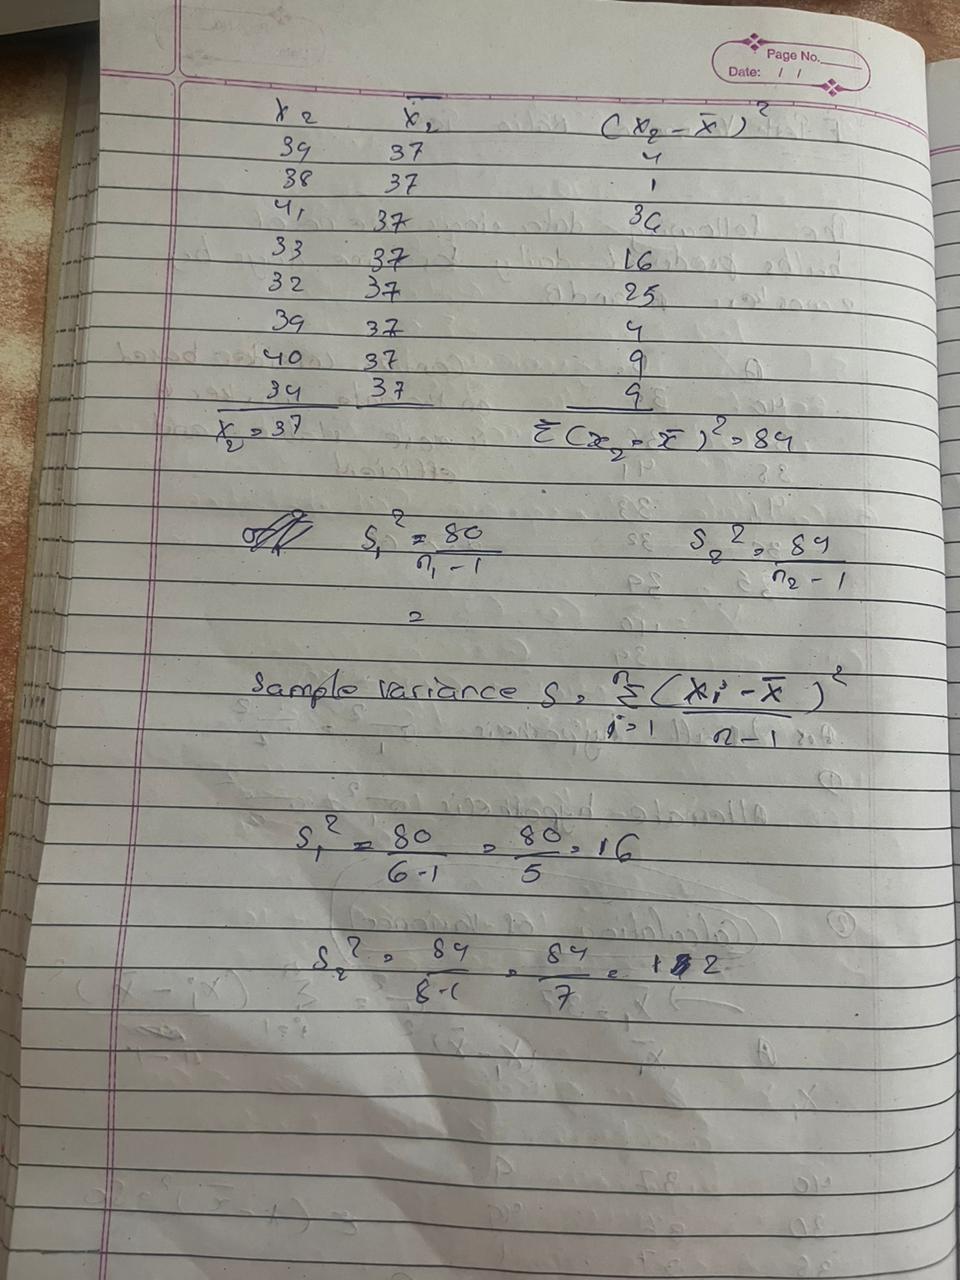 Page No.
Date: / /
x2 x̄2 (x2 - x̄)²
39 37 4
38 37 1
41 37 36
33 37 16
32 37 25
39 37 4
40 37 9
34 37 9
x̄2 = 37 Σ(x2 - x̄)² = 84
S1² = 80 / n1 - 1 S2² = 84 / n2 - 1
=
Sample variance S = n Σ i=1 (xi - x̄)² / n - 1
S1² = 80 / 6-1 = 80 / 5 = 16
S2² = 84 / 8-1 = 84 / 7 = 12